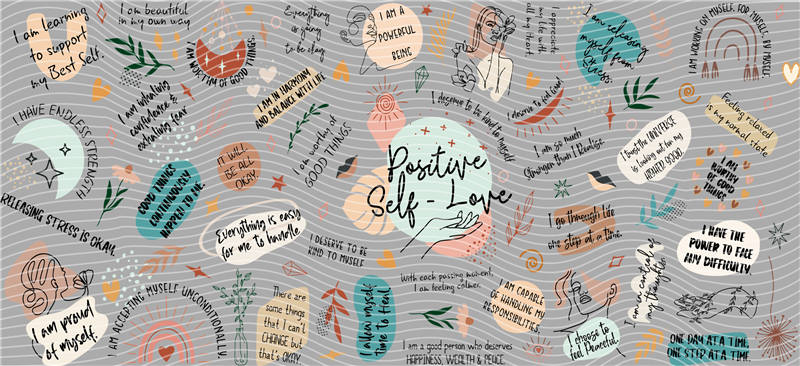 I am learning
to support
my Best Self.
I am beautiful
in my own way.
Everything
is going
to be okay
I AM A
POWERFUL
BEING
I appreciate
my life with
all my heart.
I am releasing
myself from
stress.
I AM WORKING ON MYSELF, FOR MYSELF, BY MYSELF.
I AM WORTHY OF GOOD THINGS.
I am inhaling
confidence &
exhaling fear
I AM IN HARMONY
AND BALANCE WITH LIFE
I deserve to be kind to myself
I deserve to be calm!
Feeling relaxed
is my normal state.
I HAVE ENDLESS STRENGTH
I am worthy of
GOOD THINGS
I am so much
stronger than I Realise.
I trust the UNIVERSE
is looking out for my
HIGHER GOOD.
IT WILL
BE ALL
OKAY.
Positive
Self - Love
I AM
WORTHY
OF GOOD
THINGS
GOOD THINGS
CONTINUOUSLY
HAPPEN TO ME.
RELEASING STRESS IS OKAY.
Everything is easy
for me to handle
I DESERVE TO BE
KIND TO MYSELF
I go through life
one step at a time.
I am in control of
my thoughts.
I HAVE THE
POWER TO FACE
ANY DIFFICULTY.
I am proud
of myself.
I AM ACCEPTING MYSELF UNCONDITIONALLY.
There are
some things
that I can't
CHANGE but
that's OKAY.
I allow myself
time to Heal
With each passing moment,
I am feeling calmer.
I AM CAPABLE
OF HANDLING MY
RESPONSIBILITIES.
I choose to
feel Peaceful.
I am a good person who deserves
HAPPINESS, WEALTH & PEACE.
ONE DAY AT A TIME,
ONE STEP AT A TIME.